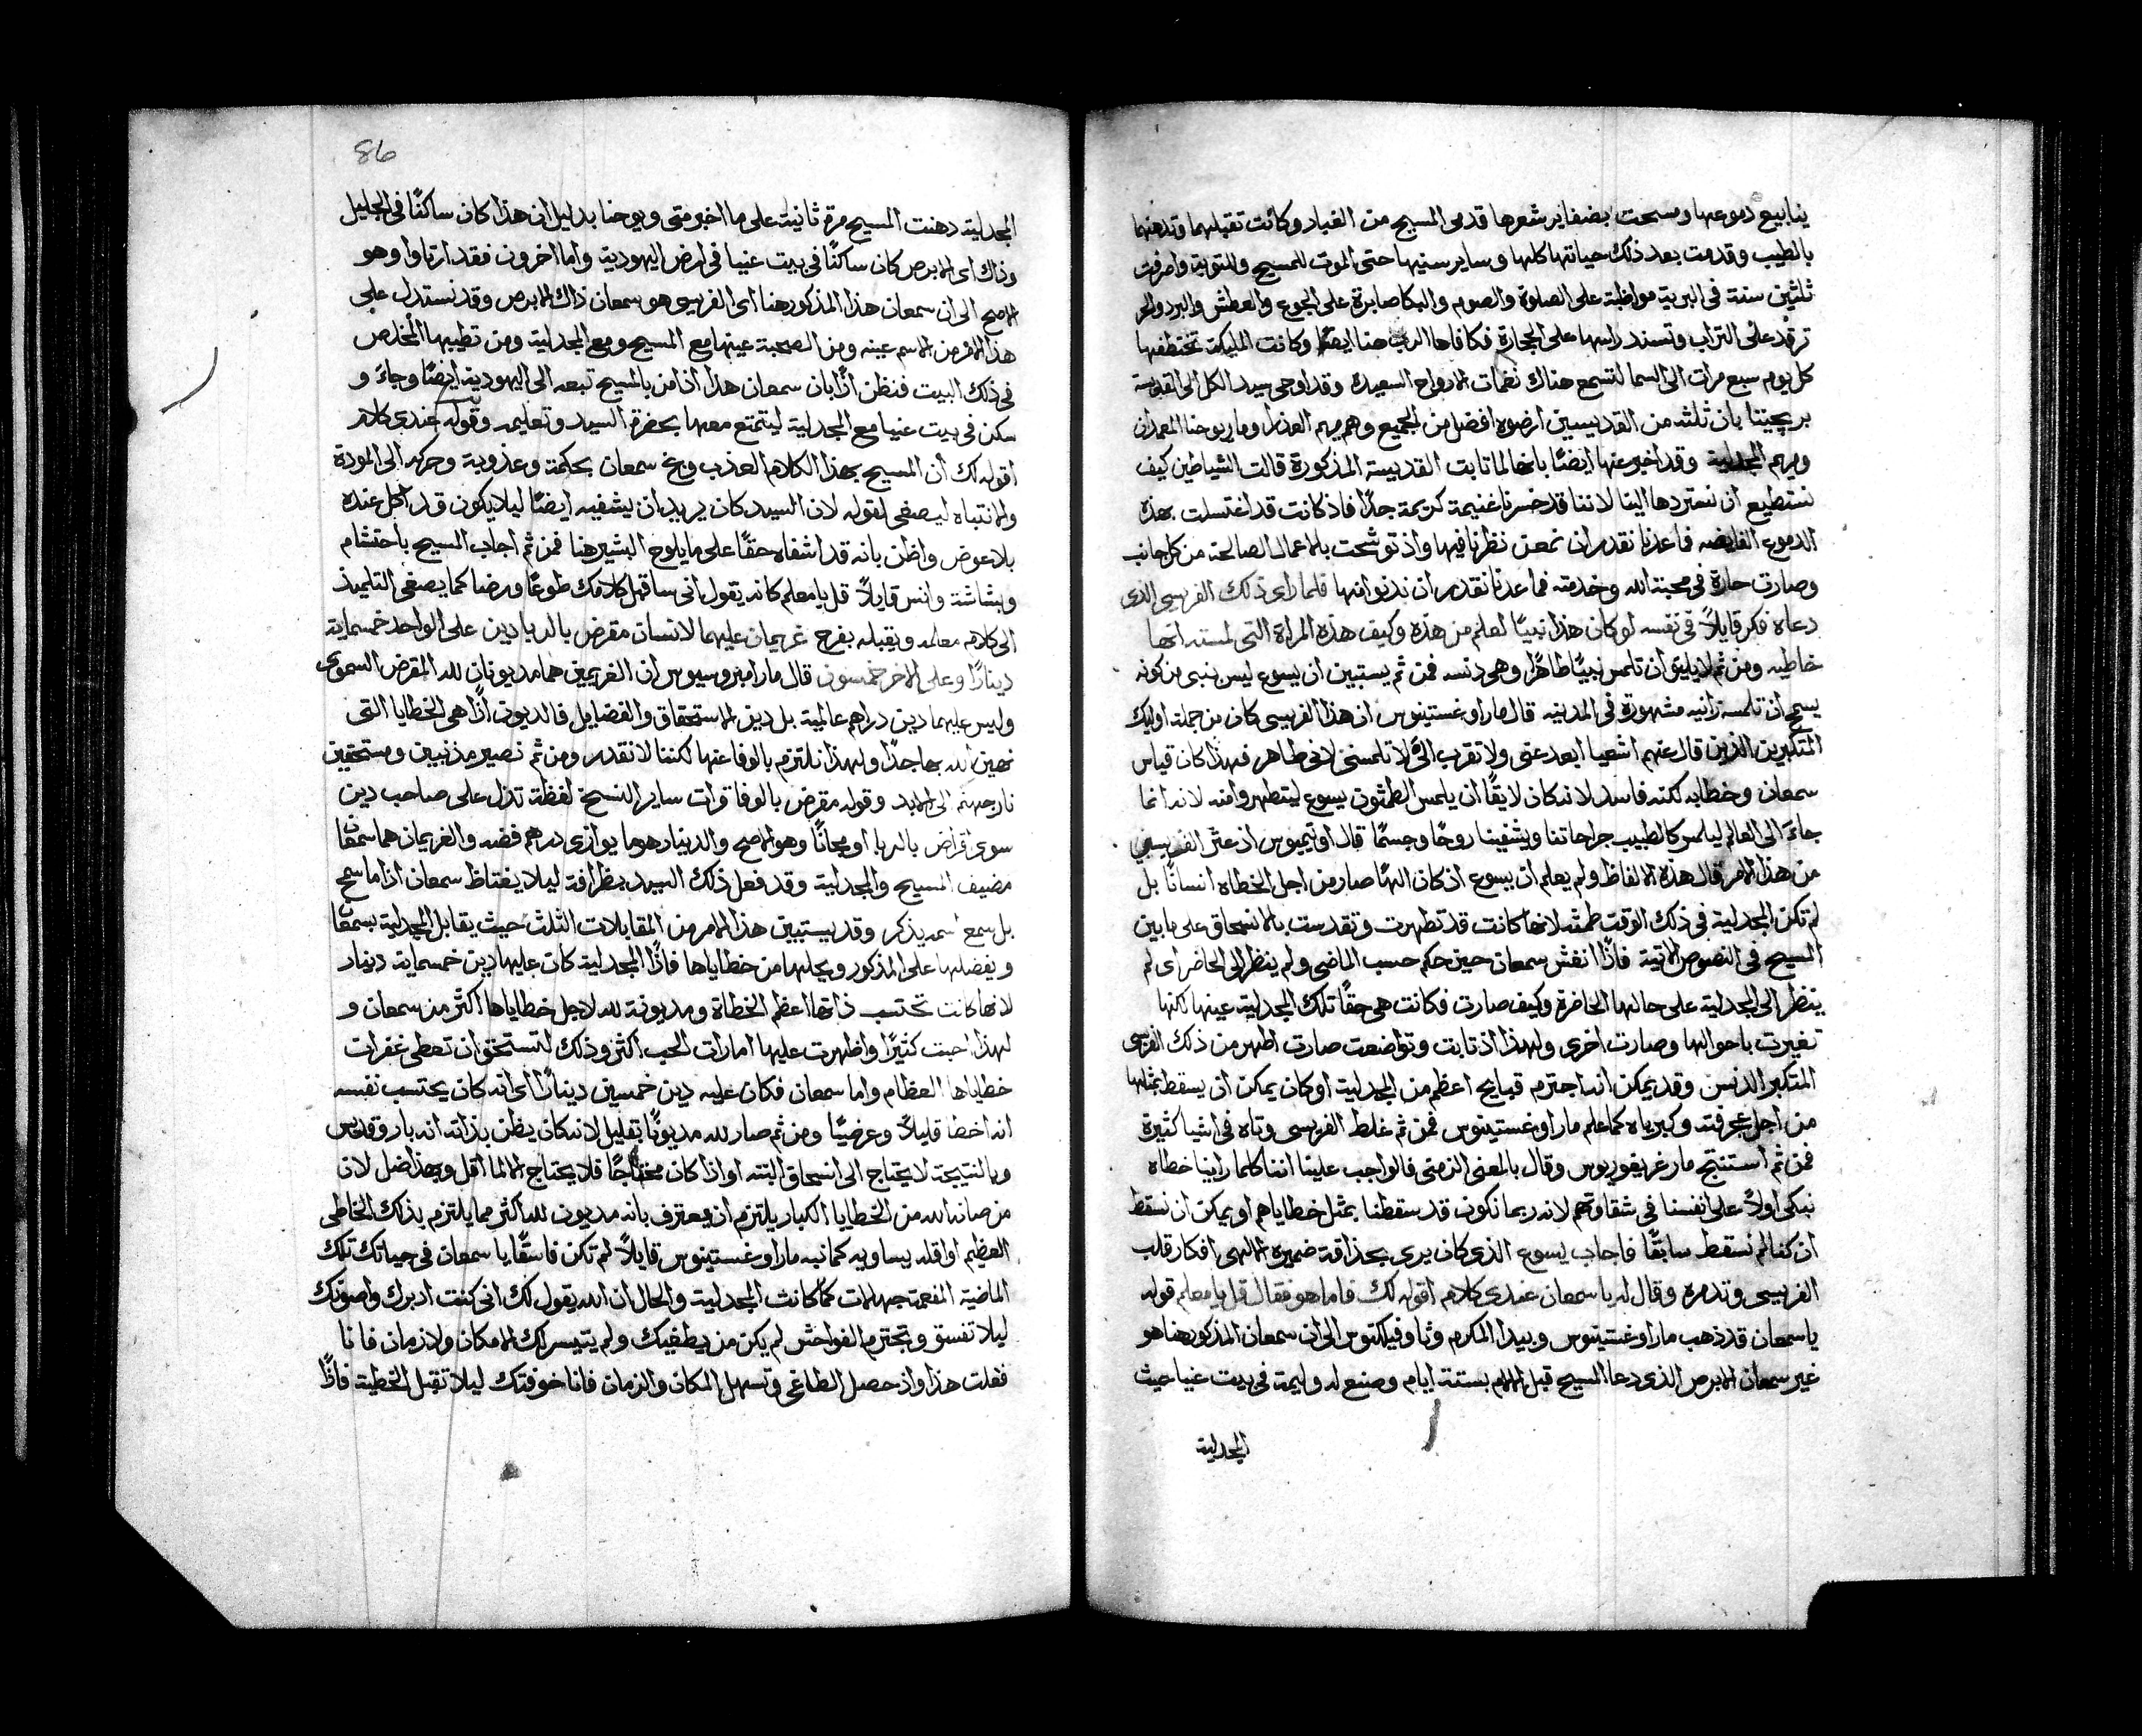 ينابيع دموعها ومسحت بضفاير شعرها قدمى المسيح من الغبار وكانت تقبلهما وتدهنهما
بالطيب وقدمت بعد ذلك حياتها كلها وساير سنيها حتى الموت للمسيح وللتوبة واصرفت
ثلثين سنة فى البرية مواظبة على الصلوة والصوم والبكا صابرة على الجوع والعطش والبرد والحر
ترقد على التراب وتسند راسها على الحجارة فكافاها الرب هنا ايضًا وكانت المليكة تختطفها
كل يوم سبع مرات الى السما لتسمع هناك نغمات الارواح السعيدة وقد اوحى سيد الكل الى القديسة
بريجيتا بان ثلثه من القديسين ارضوه افضل من الجميع وهم مريم العذرا ومار يوحنا المعمدان
ومريم المجدلية وقد اخبر عنها ايضًا بانها لما تابت القديسة المذكورة قالت الشياطين كيف
نستطيع ان نستردها الينا لاننا قد خسرنا غنيمة كريمة جدًا فاذ كانت قد اغتسلت بهذه
الدموع الفايضه فما عدنا نقدر ان نمعن نظرنا فيها واذ توشحت بالاعمال الصالحة من كل جانب
وصارت حارة فى محبة الله وخدمته فما عدنا نقدر ان ندنوا منها فلما راى ذلك الفريسى الذى
دعاه فكر قايلاً فى نفسه لو كان هذا نبيًا لعلم من هذه وكيف هذه المراة التى لمسته انها
خاطيه ومن ثم لا يليق ان تلمس نبيًا طاهرًا وهى دنسه فمن ثم يستبين ان يسوع ليس نبى من كونه
يسمح ان تلمسه زانيه مشهورة فى المدينه قال مار اوغستينوس ان هذا الفريسى كان من جملة اوليك
المتكبرين الذين قال عنهم اشعيا ابعد عنى ولا تقرب الىّ لا تلمسنى لانى طاهر فهذا كان قياس
سمعان وخطابه لكنه فاسد لانه كان لايقًا ان يلمس الطمثون يسوع ليتطهروا منه لانه انما
جاءَ الى العالم ليلمس كالطبيب جراحاتنا ويشفينا روحًا وجسمًا قال اوتيميوس اذ عثر الفريسى
من هذا الامر قال هذه الالفاظ ولم يعلم ان يسوع اذ كان الهًا صار من اجل الخطاه انسانًا بل
لم تكن المجدلية فى ذلك الوقت طمثه لانها كانت قد تطهرت وتقدست بالانسحاق على ما بين
المسيح فى النصوص الاتية فاذًا انغش سمعان حين حكم حسب الماضى ولم ينظر الى الحاضر اى لم
ينظر الى المجدلية على حالها الحاضرة وكيف صارت فكانت هى حقًا تلك المجدلية عينها لكنها
تغيرت باحوالها وصارت اخرى ولهذا اذ تابت وتواضعت صارت اطهر من ذلك الفريسى
المتكبر الدنس وقد يمكن انه اجترم قبايح اعظم من المجدلية او كان يمكن ان يسقط بمثلها
من اجل عجرفته وكبرياه كما علم مار اوغستينوس فمن ثم غلط الفريسى وتاه فى اشيا كثيرة
فمن ثم استنتج مار غريغوريوس وقال بالمعنى الزمنى فالواجب علينا اننا كلما راينا خطاه
نبكى اولاً على انفسنا فى شقاوتهم لانه ربما نكون قد سقطنا بمثل خطاياهم او يمكن ان نسقط
ان كنا لم نسقط سابقًا فاجاب يسوع الذى كان يرى بحذاقة ضميره الالهى افكار قلب
الفريسى وتذمره وقال له يا سمعان عندى كلام اقوله لك فاما هو فقال قل يا معلم قوله
يا سمعان قد ذهب مار اوغستينوس وبيدا المكرم وثاوفيلكتوس الى ان سمعان المذكور هنا هو
غير سمعان الابرص الذى دعا المسيح قبل الالام بستة ايام وصنع له وليمة فى بيت عنيا حيث
المجدلية
86
المجدلية دهنت المسيح مرة ثانية على ما اخبر متى ويوحنا بدليل ان هذا كان ساكنًا فى الجليل
وذاك اى الابرص كان ساكنًا فى بيت عنيا فى ارض اليهودية واما اخرون فقد ارتاوا وهو
الاصح الى ان سمعان هذا المذكور هنا اى الفريسى هو سمعان ذاك الابرص وقد نستدل على
هذا الامر من الاسم عينه ومن الصحبة عينها مع المسيح ومع المجدلية ومن تطييبها المخلص
فى ذلك البيت فنظن اذًا بان سمعان هذا اذ امن بالمسيح تبعه الى اليهودية ايضًا وجاءَ و
سكن فى بيت عنيا مع المجدلية ليتمتع معها بحضرة السيد وتعليمه وقوله عندى كلام
اقوله لك ان المسيح بهذا الكلام العذب وبخ سمعان بحكمة وعذوبة وحركه الى المودة
والانتباه ليصغى لقوله لان السيد كان يريد ان يشفيه ايضًا ليلا يكون قد اكل عنده
بلا عوض واظن بانه قد اشفاه حقًا على ما يلوح البشير هنا فمن ثم اجاب المسيح باحتشام
وبشاشة وانس قايلاً قل يا معلم كانه يقول انى ساقبل كلامك طوعًا ورضا كما يصغى التلميذ
الى كلام معلمه ويقبله بفرح غريمان عليهما لانسان مقرض بالربا دين على الواحد خمسماية
دينارًا وعلى الاخر خمسون قال مار امبروسيوس ان الغريمين هما مديونان لله المقرض السموى
وليس عليهما دين دراهم عالمية بل دين الاستحقاق والفضايل فالديون اذًا هى الخطايا التى
نهين الله بها جدًا ولهذا نلتزم بالوفا عنها لكننا لا نقدر ومن ثم نصير مذنبين ومستحقين
نار جهنم الى الابد وقوله مقرض بالوفا قرات ساير النسخ لفظة تدل على صاحب دين
سوى اقراض بالربا او مجانًا وهو الاصح والدينار هو ما يوازى درهم فضه والغريمان هما سمعان
مضيف المسيح والمجدلية وقد فعل ذلك السيد بظرافة ليلا يغتاظ سمعان اذا ما سمح
بل سمع اسمه يذكر وقد يستبين هذا الامر من المقابلات الثلث حيث يقابل المجدلية بسمعان
ويفضلها على المذكور ويحلها من خطاياها فاذًا المجدلية كان عليها دين خمسماية دينار
لانها كانت تحتسب ذاتها اعظم الخطاة ومديونة لله لاجل خطاياها اكثر من سمعان و
لهذا احبت كثيرًا واظهرت عليها امارات الحب اكثر وذلك لتستحق ان تعطى غفران
خطاياها العظام واما سمعان فكان عليه دين خمسين دينارًا اى انه كان يحتسب نفسه
انه اخطا قليلاً وعرضيًا ومن ثم صار لله مديونًا بقليل لانه كان يظن بذاته انه بار وقديس
وبالنتيجة لا يحتاج الى انسحاق البته او اذا كان محتاجًا فلا يحتاج الا لما اقل وبهذا ضل لان
من صانه الله من الخطايا الكبار يلتزم ان يعترف بانه مديون لله اكثر مما يلتزم بذلك الخاطى
العظيم او اقله يساويه كما نبه مار اوغستينوس قايلاً لم تكن فاسقًا يا سمعان فى حياتك تلك
الماضية المفعمة جهالات كما كانت المجدلية والحال ان الله يقول لك انى كنت ادبرك واصونك
ليلا تفسق وتجترم الفواحش لم يكن من يطغيك ولم يتيسر لك الامكان ولا زمان فانا
فعلت هذا واذ حصل الطاغى وتسهل المكان والزمان فانا خوفتك ليلا تقبل الخطية فاذًا